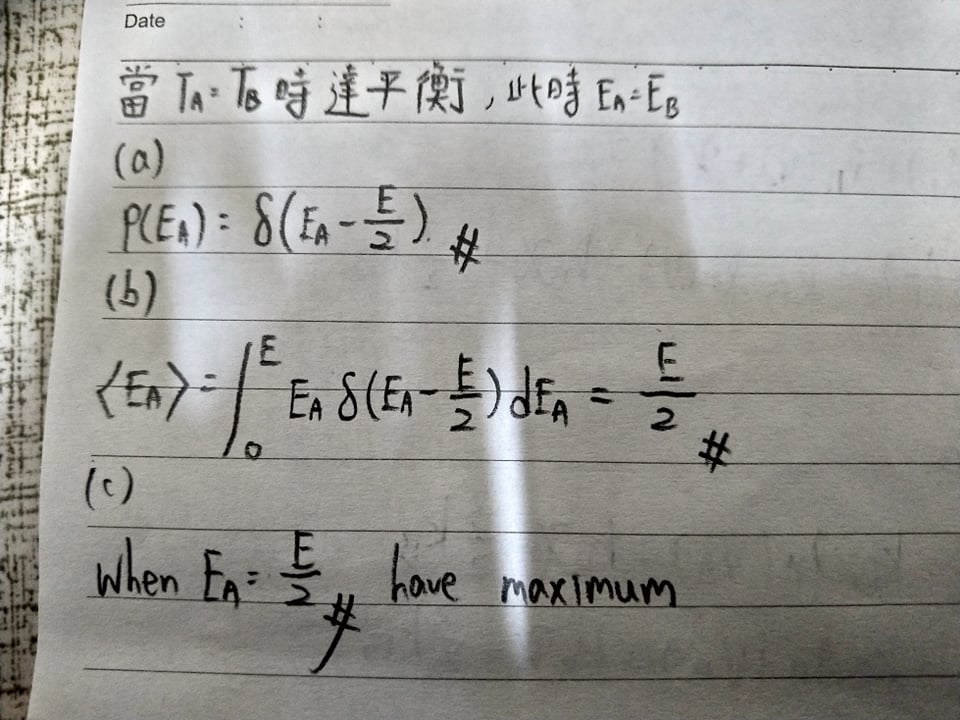 Date : :
當 T_A = T_B 時達平衡, 此時 E_A = E_B
(a)
P(E_A) = δ(E_A - E/2). #
(b)
⟨E_A⟩ = ∫_0^E E_A δ(E_A - E/2) dE_A = E/2 #
(c)
When E_A = E/2 # have maximum